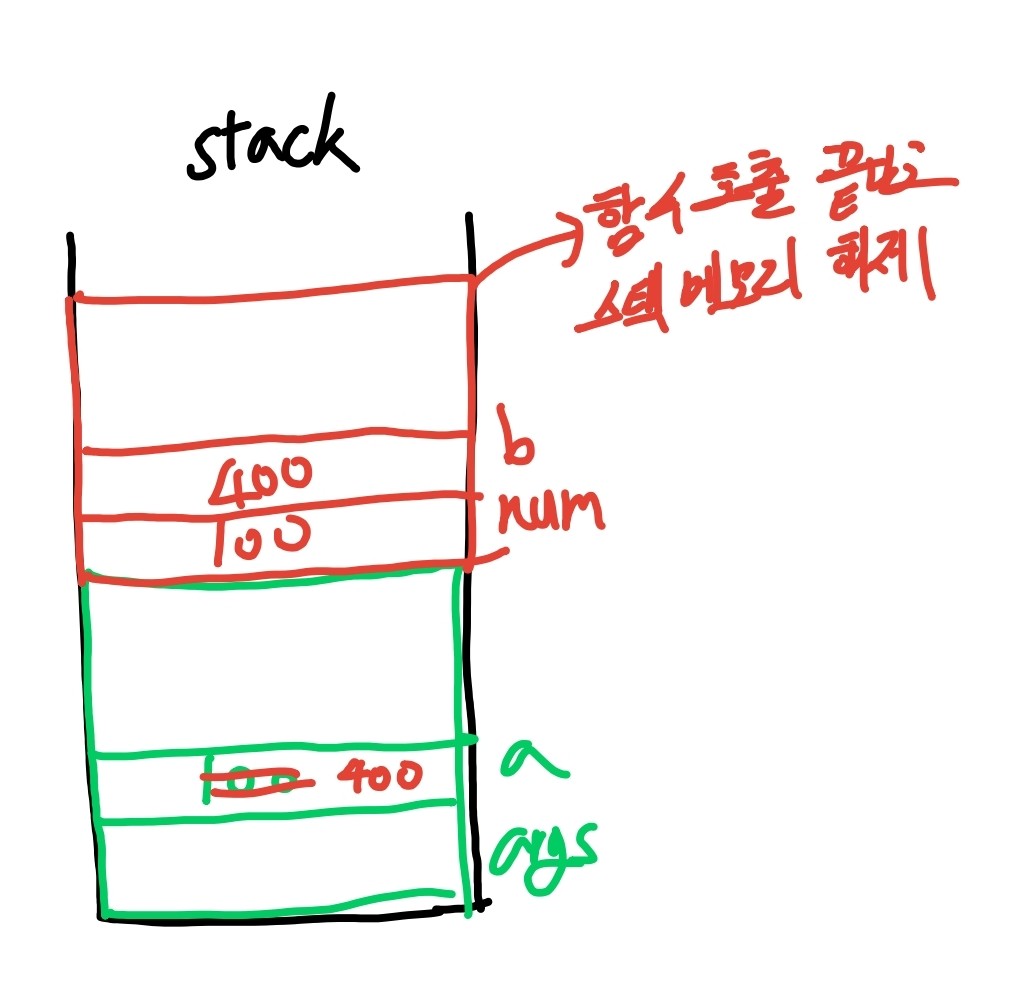 stack
함수 호출 끝나고
스택 메모리 해제
b
400
num
100
a
100 400
args